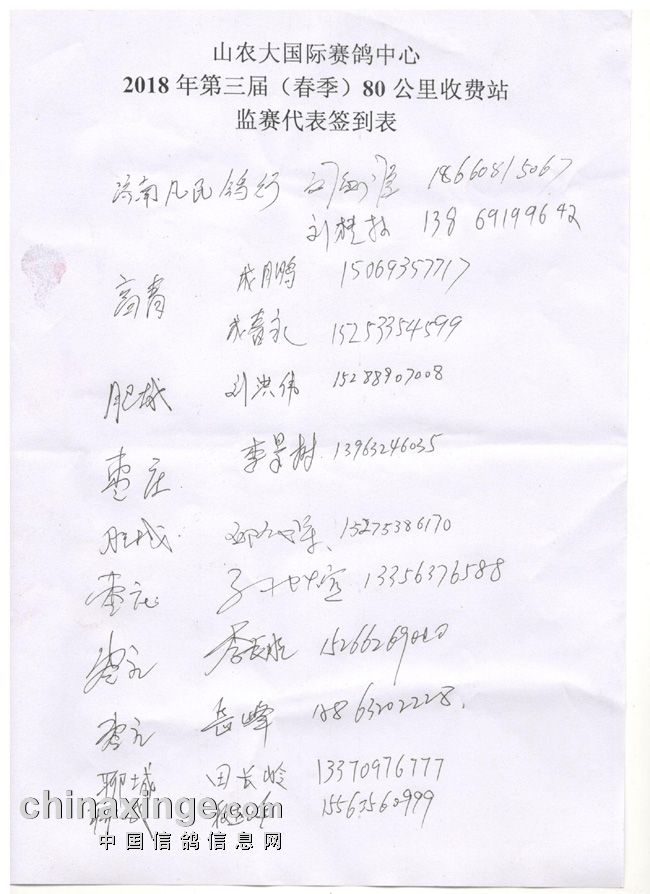 山农大国际赛鸽中心
2018 年第三届（春季）80 公里收费站
监赛代表签到表
济南凡民鸽行 18660815067
刘桂林 13869199642
高青 成月鹏 15069357717
成喜永 15253354599
肥城 刘洪伟 15288907008
枣庄 李景树 13963246035
肥城 15275386170
枣庄 13356376588
枣庄 李长胜
枣庄 岳峰
聊城 田长岭 13370976777
聊城 15563560999
chinaxinge.com
中国信鸽信息网